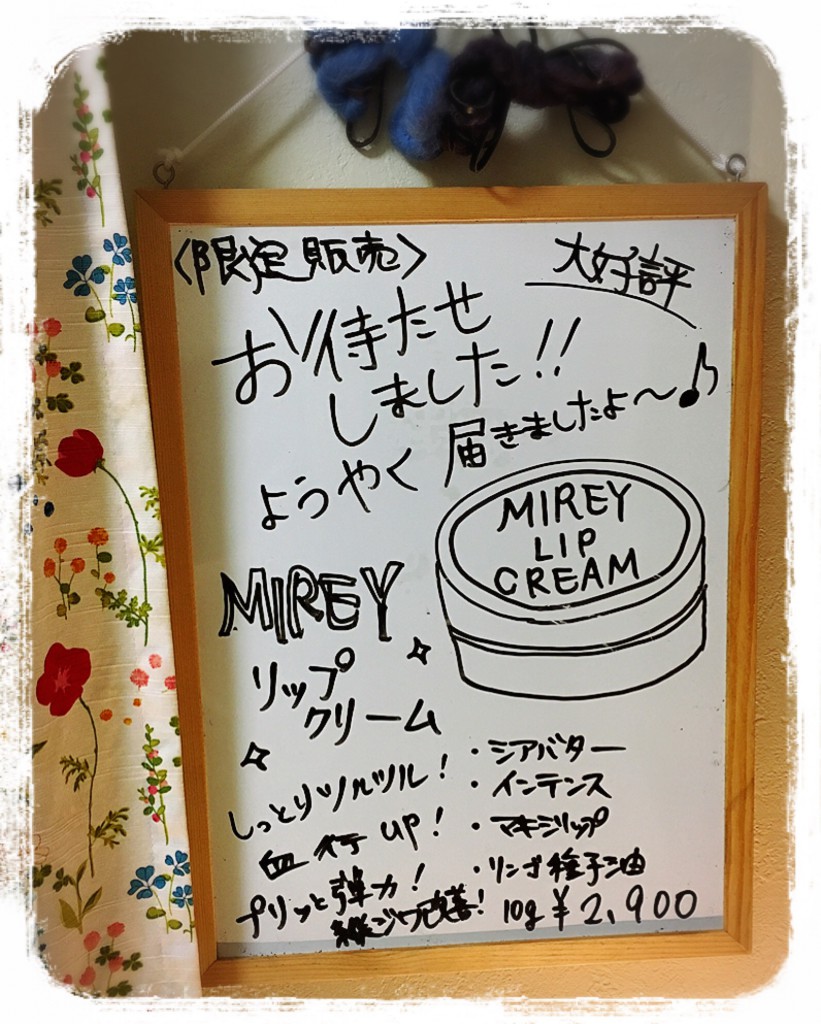 〈限定販売〉
大好評
お待たせ
しました!!
ようやく 届きましたよ〜♪
MIREY
LIP
CREAM
MIREY
リップ
クリーム
しっとりツルツル!
血行UP!
プリッと弾力!
縦ジワ改善!
・シアバター
・インテンス
・マキシリップ
・リンゴ種子油
10g ¥2,900